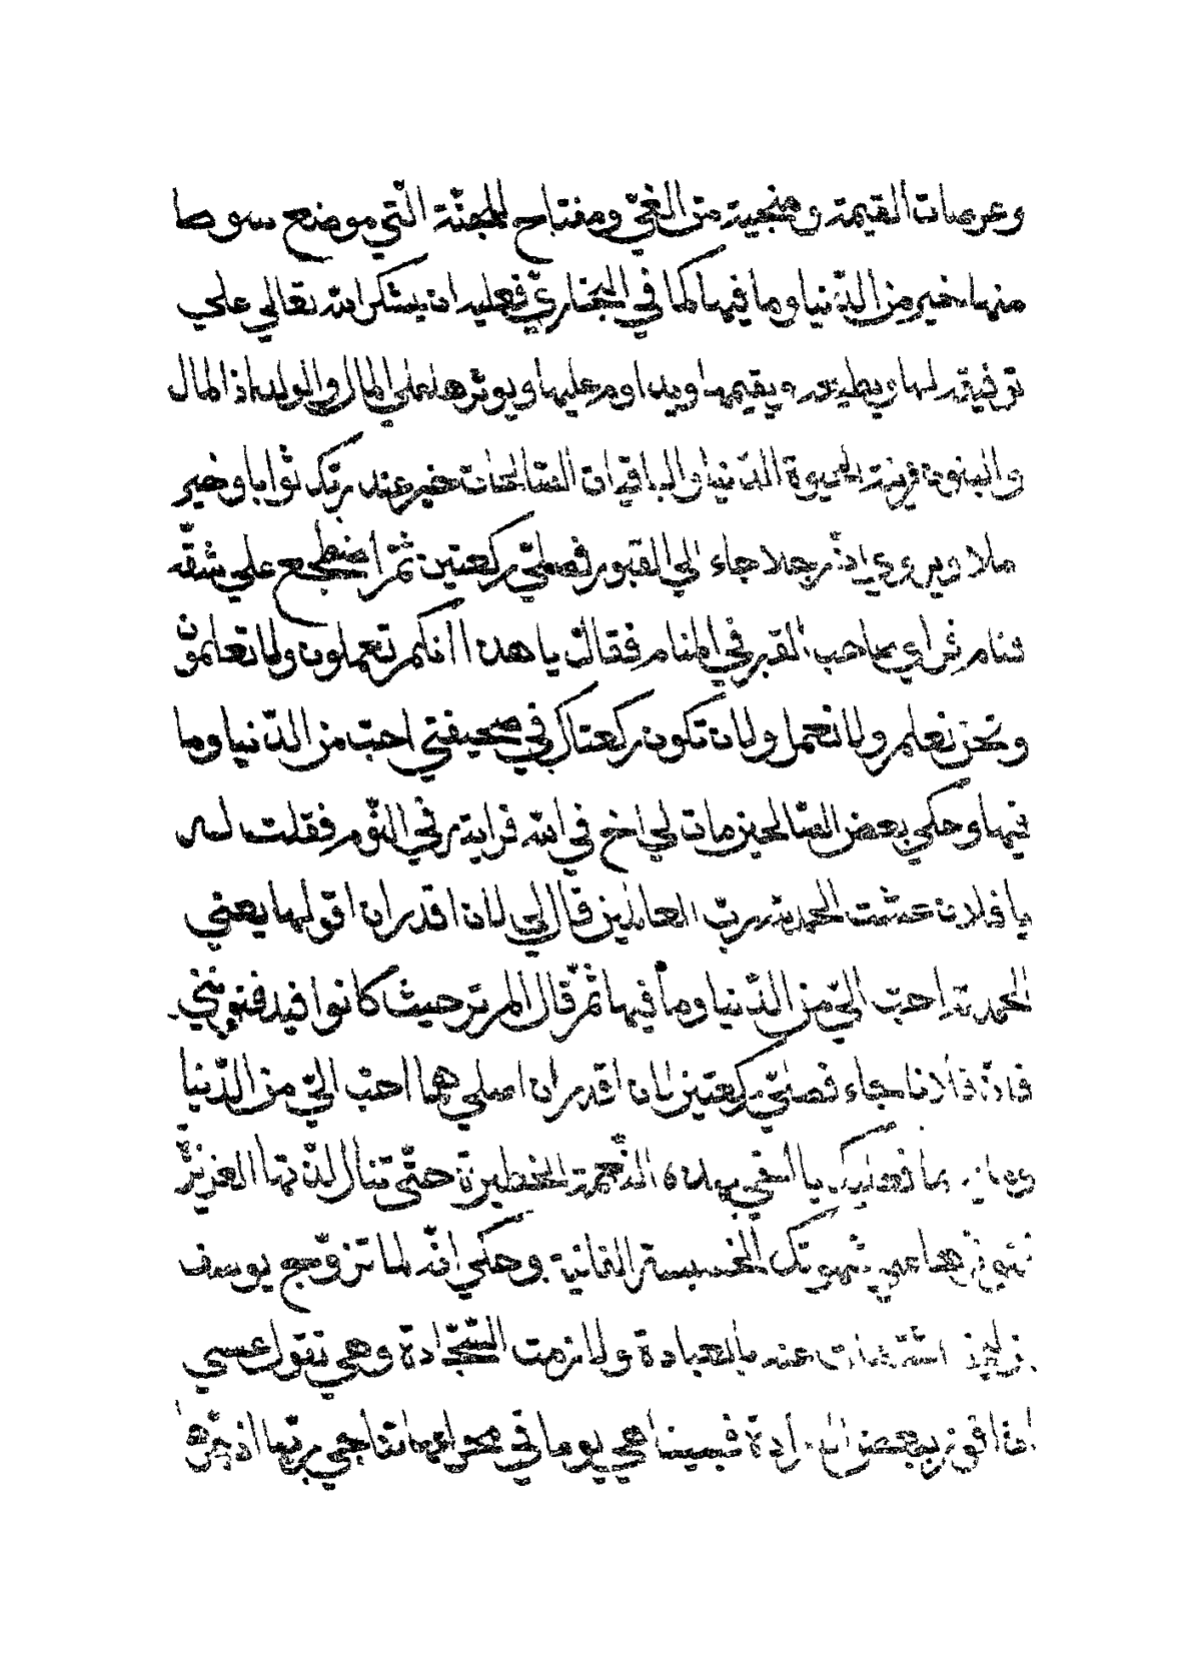 وعرصات القيمة ومنجية من الغي ومفتاح للجنّة الّتي موضع سوط
منها خير من الدّنيا وما فيها كما في البخاري فعليه ان يشكر الله تعالي علي
توفيقه لها ويطيعه ويقيمها ويداوم عليها ويوثرها علي المال والولد اذ المال
والبنون زينة الحيوة الدّنيا والباقيات الصّالحات خير عند ربّك ثوابا وخير
ملا ويروي انّ رجلا جاء الي القبور فصلّي ركعتين ثمّ اضطجع علي شقّه
فنام فراي صاحب القبر في المنام فقال يا هذا انكم تعملون ولا تعلمون
ونحن نعلم ولا نعمل ولان تكون ركعتاك في صحيفتي احبّ من الدّنيا وما
فيها وحكي بعض الصّالحين مات لي اخ في الله فرايته في النّوم فقلت له
يا فلان عشت الحمد لله ربّ العالمين قال لي لان اقدر ان اقولها يعني
الحمد لله احبّ اليّ من الدّنيا وما فيها ثمّ قال الم تر حيث كانوا فيه
فانّ فلانا جاء فصلّي ركعتين لان اقدر ان اصلي هما احبّ اليّ من الدّنيا
وما فيها يا اخي بهذه النّعمة الخطيرة حتّي تنال لذّتها العزيزة
شهوتك الخسيسة الفانية وحكي انّه لما تزوّج يوسف
زليخا اشتغلت عنه بالعبادة ولازمت السّجّادة وهي تقول عسي
افوز ببعض الارادة فبينما هي يوما في محرابها تناجي ربّها اذ